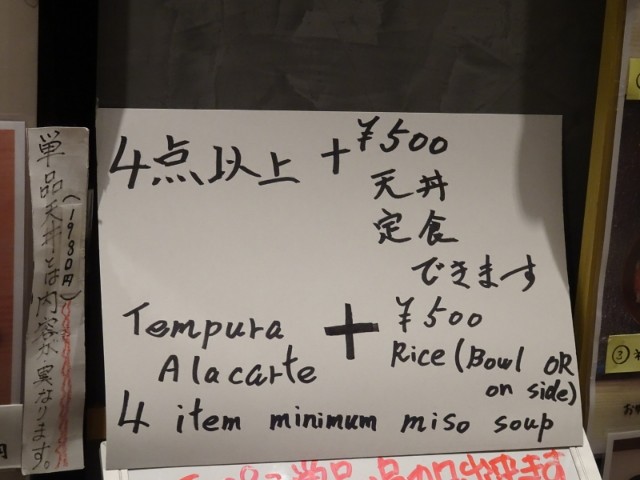 4点以上 + ¥500
天丼
定食
できます
Tempura + ¥500
Alacarte Rice (Bowl OR
on side)
4 item minimum miso soup
単品天丼とは内容が異なります。
(1980円)
円
③